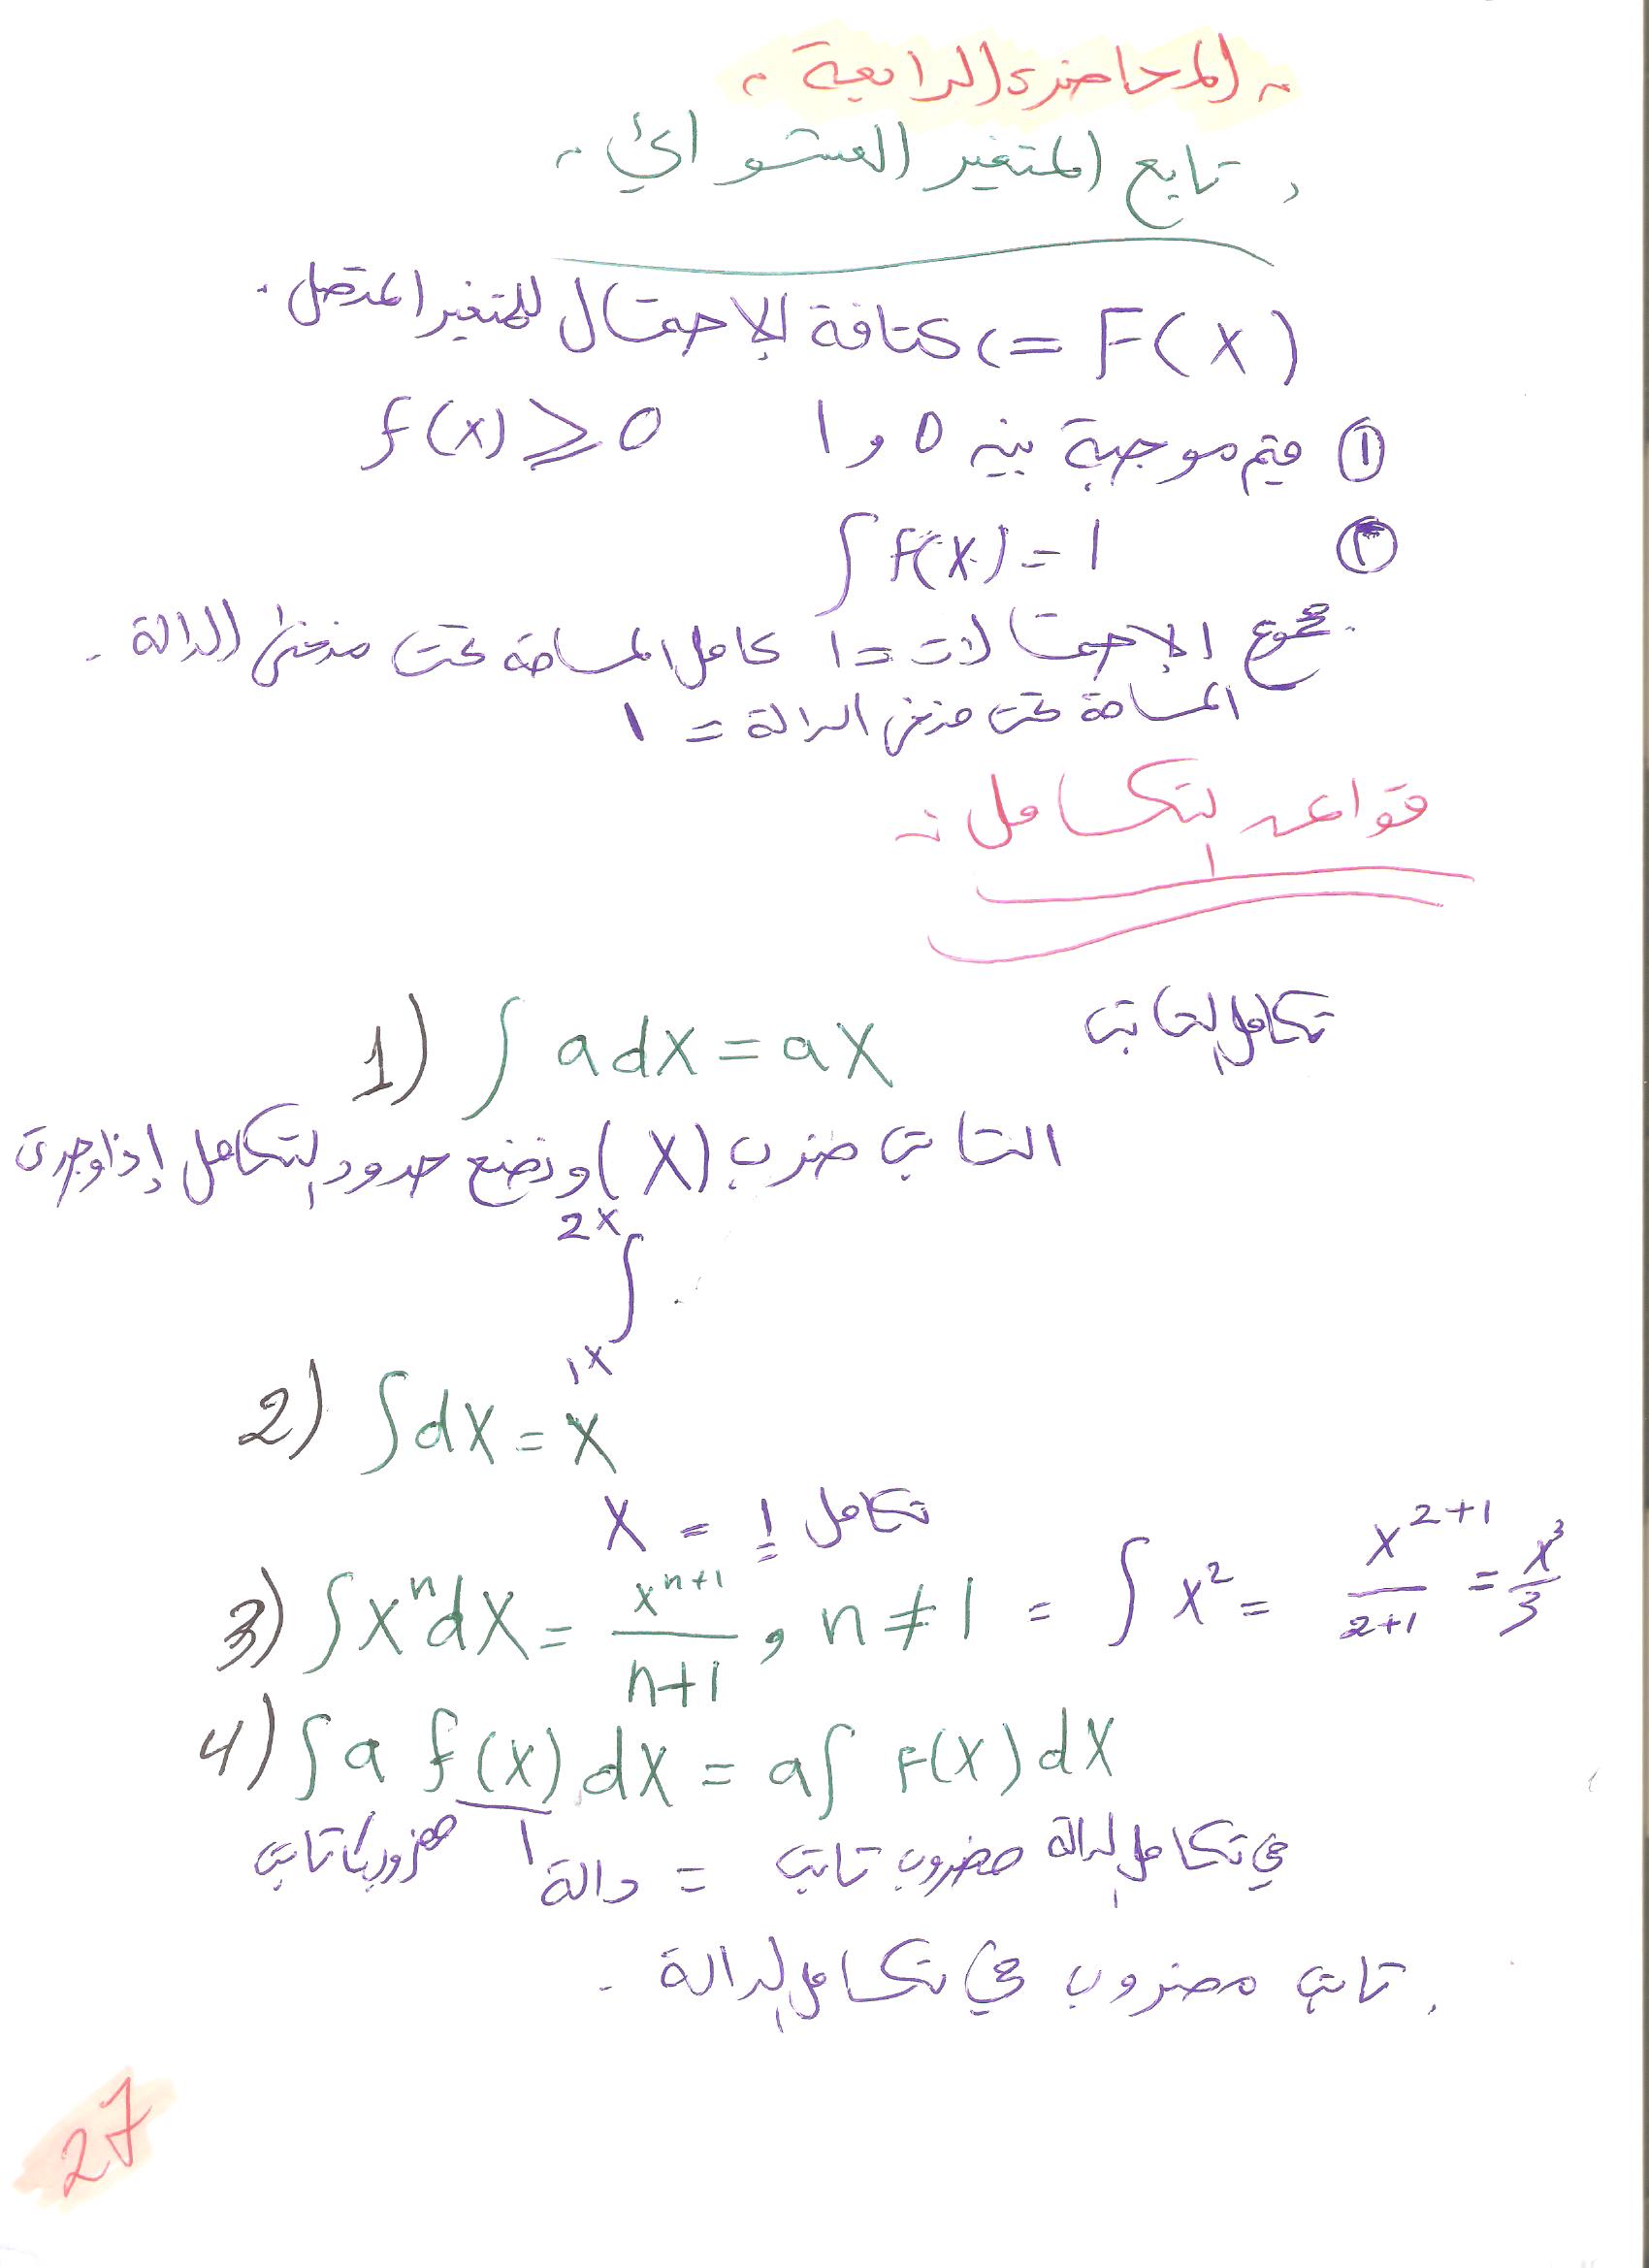 المحاضرة الرابعة
تابع المتغير العشوائي
F(x) => كثافة الإحتمال للمتغير المتصل.
① قيم موجبة بين 0 و 1 f(x) ≥ 0
② ∫ f(x) = 1
مجموع الإحتمالات = 1 كامل المساحة تحت منحنى الدالة.
المساحة تحت منحنى الدالة = 1
قواعد التكامل :-
1) ∫ a dx = ax تكامل الثابت
الثابت ضرب (x) ونضع حدود التكامل إذا وجدت
2x
∫
1x
2) ∫ dx = x
تكامل 1 = x
3) ∫ xⁿ dx = xⁿ⁺¹/n+1 , n ≠ 1 = ∫ x² = x²⁺¹/2+1 = x³/3
4) ∫ a f(x) dx = a ∫ F(x) dx
في تكامل الدالة مضروب ثابت = دالة مضروب ثابت
ثابت مضروب في تكامل الدالة.
27